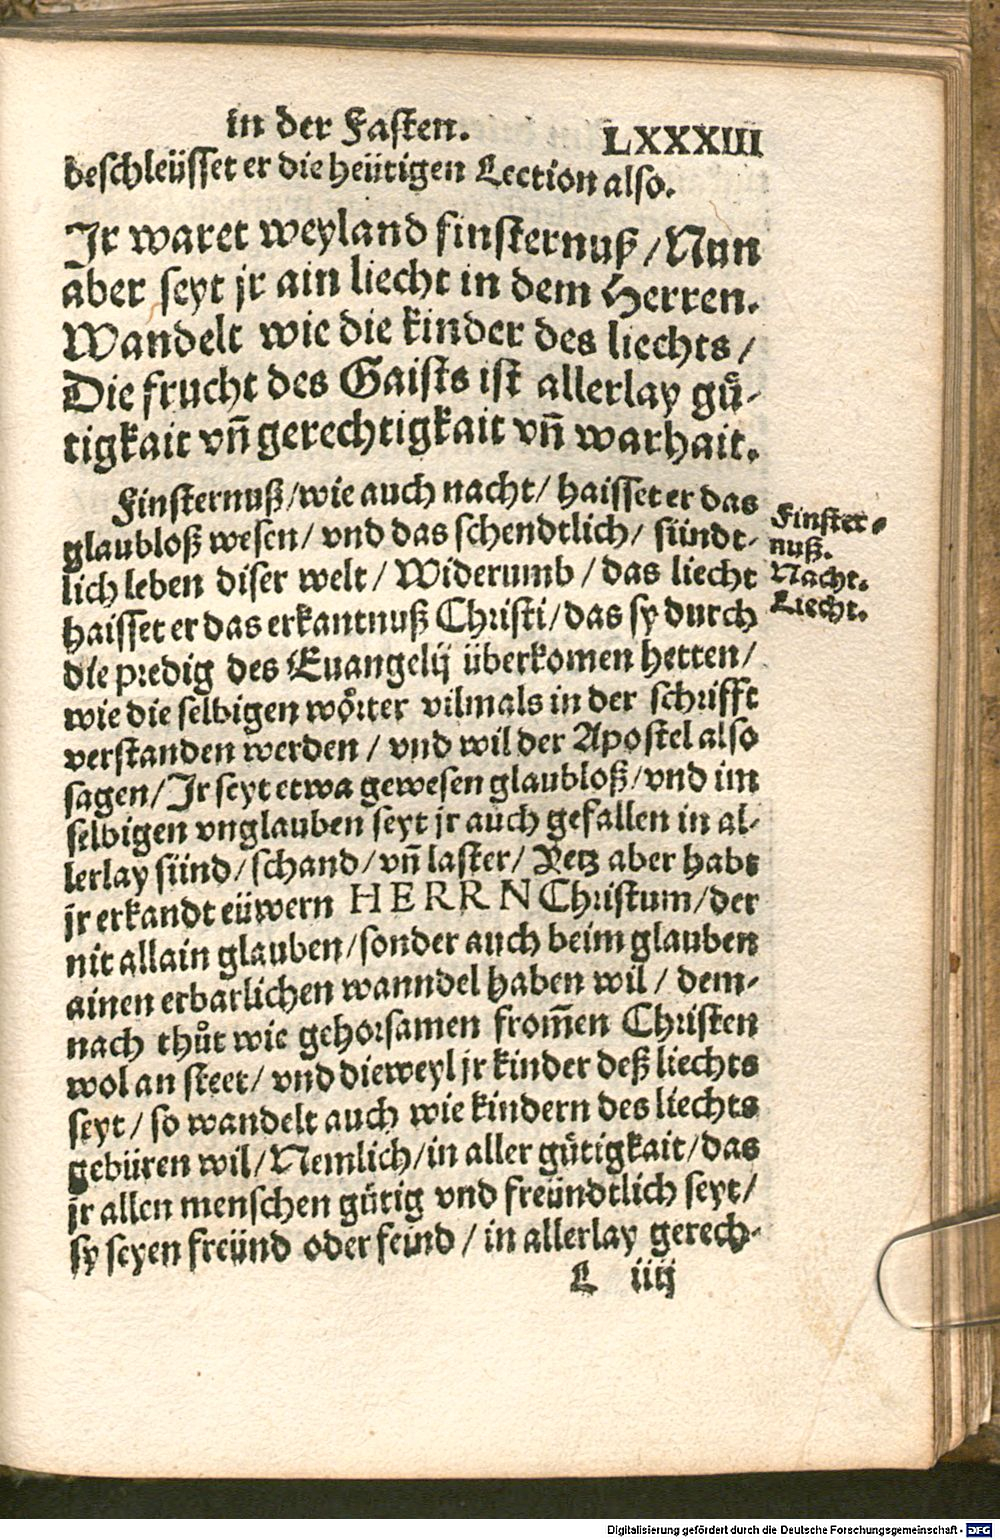 in der Fasten.
LXXXIII
beschleüsset er die heütigen Lection also.
Jr waret weyland finsternuß / Nun
aber seyt jr ain liecht in dem Herren.
Wandelt wie die kinder des liechts /
Die frucht des Gaists ist allerlay guͤ-
tigkait vñ gerechtigkait vñ warhait.
Finsternuß / wie auch nacht / haisset er das
glaubloß wesen / vnd das schendtlich / sündt-
lich leben diser welt / Widerumb / das liecht
haisset er das erkantnuß Christi / das sy durch
die predig des Euangelij überkomen hetten /
wie die selbigen woͤrter vilmals in der schrifft
verstanden werden / vnd wil der Apostel also
sagen / Jr seyt etwa gewesen glaubloß / vnd im
selbigen vnglauben seyt jr auch gefallen in al-
lerlay sünd / schand / vñ laster / Yetz aber habt
jr erkandt eüwern HERRN Christum / der
nit allain glauben / sonder auch beim glauben
ainen erbarlichen wanndel haben wil / dem-
nach thuͦt wie gehorsamen from̃en Christen
wol an steet / vnd dieweyl jr kinder deß liechts
seyt / so wandelt auch wie kindern des liechts
gebüren wil / Nemlich / in aller guͤtigkait / das
jr allen menschen guͤtig vnd freündtlich seyt /
sy seyen freünd oder feind / in allerlay gerech-
L iiij
Finster-
nuß.
Nacht.
Liecht.
Digitalisierung gefördert durch die Deutsche Forschungsgemeinschaft - DFG